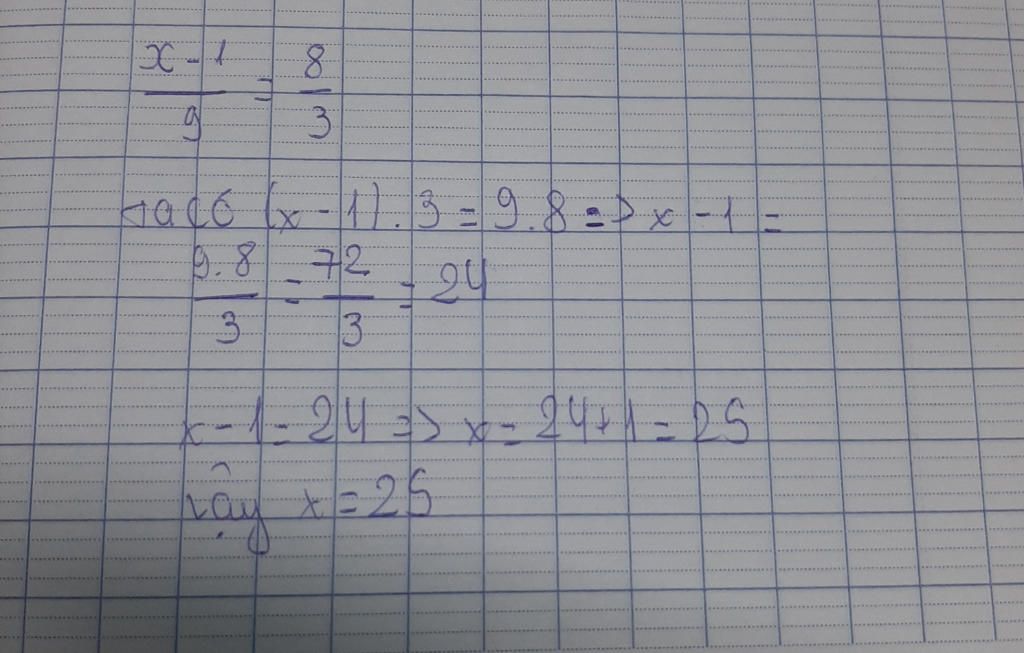 x - 1 / 9 = 8 / 3
ta có (x - 1). 3 = 9. 8 => x - 1 =
9. 8 / 3 = 72 / 3 = 24
x - 1 = 24 => x = 24 + 1 = 25
vậy x = 25